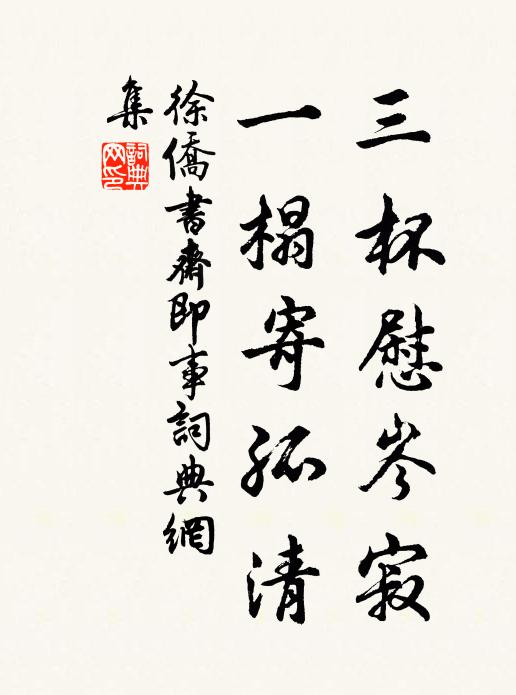 三杯慰岑寂
一榻寄孤清
徐僑書齋即事詞典網
集
詞典网印